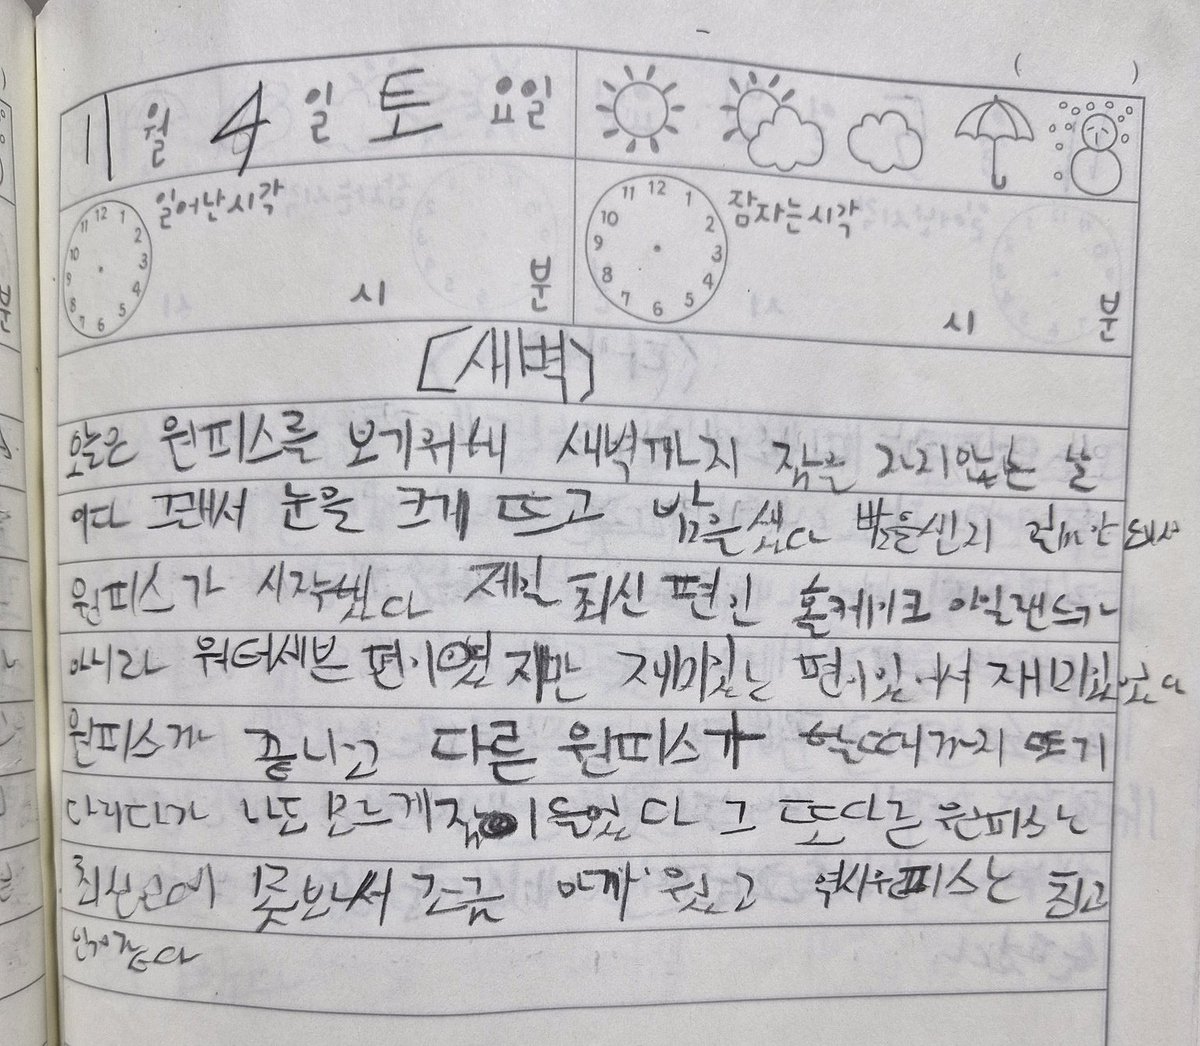 11월 4일 토요일
일어난시각
12 1 2 3 4 5 6 7 8 9 10 11
시 분
잠자는시각
12 1 2 3 4 5 6 7 8 9 10 11
시 분
[새벽]
오늘은 원피스를 보기위해 새벽까지 잠을 자지않는 날
이다 그래서 눈을 크게 뜨고 밤을샜다 밤을샌지 얼마안돼서
원피스가 시작했다 제일 최신 편인 홀케이크 아일랜드가
아니라 워터세븐 편이였지만 재미있는 편이있어서 재미있었다
원피스가 끝나고 다른 원피스가 할때까지 또기
다리다가 나도 모르게 잠이 들었다 그 또다른 원피스는
못봐서 조금 아까웠고 역시원피스는 최고
인거같다